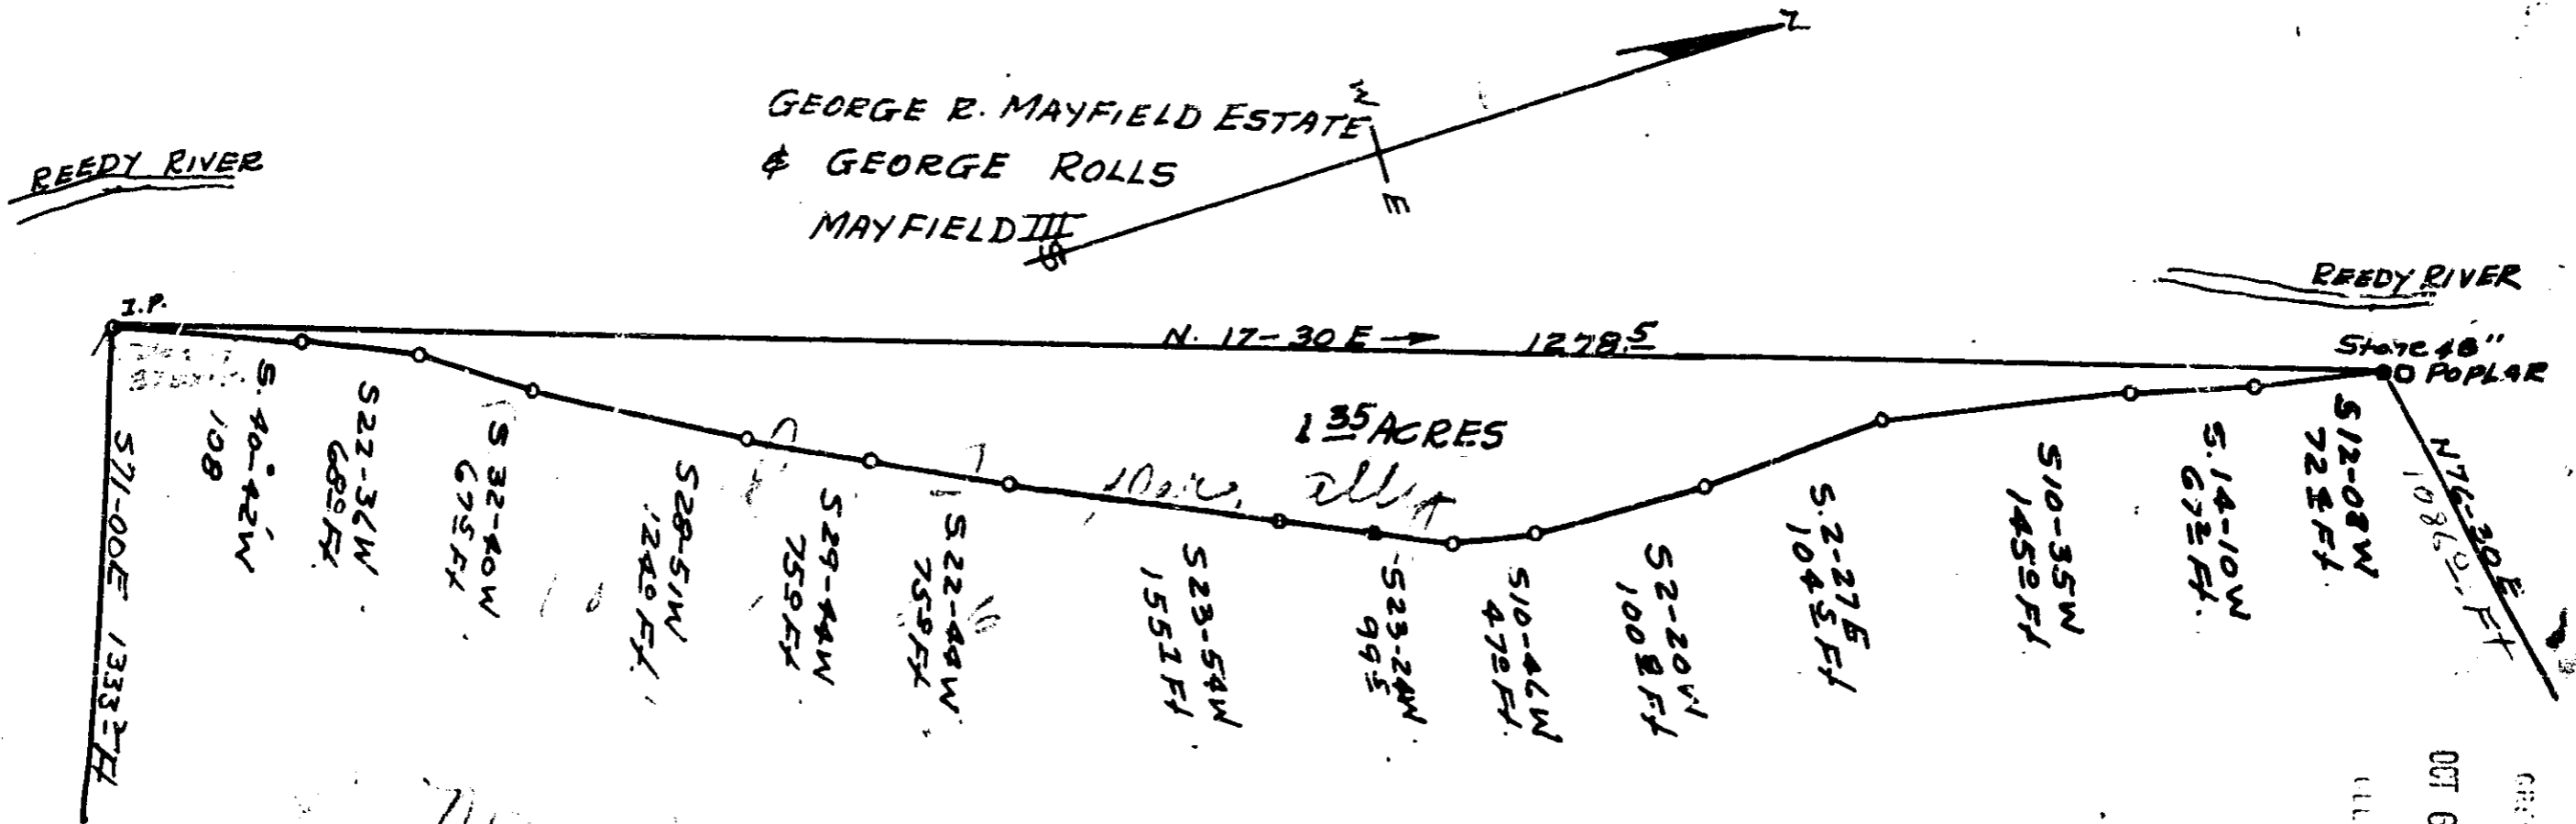 N
W
GEORGE R. MAYFIELD ESTATE
& GEORGE ROLLS
MAYFIELD III
E
S
REEDY RIVER
REEDY RIVER
I.P.
N. 17-30 E → 1278.5
Stone 48"
POPLAR
1 35 ACRES
S71-00E 1333.2 Ft
S. 40°-42'W
108
S22-36W
68.0 Ft
S 32-40W
67.5 Ft
S28-51W
124.0 Ft.
S29-44W
75.0 Ft
S22-44W
75.0 Ft
S23-54W
155.1 Ft
S23-24W
99.5
S10-46W
47.0 Ft.
S2-20W
S. 2-27 E
104.5 Ft
S10-35W
145.0 Ft
S. 14-10W
67.2 Ft.
S12-08W
N76-30 E
1086.0 Ft
OCT 6